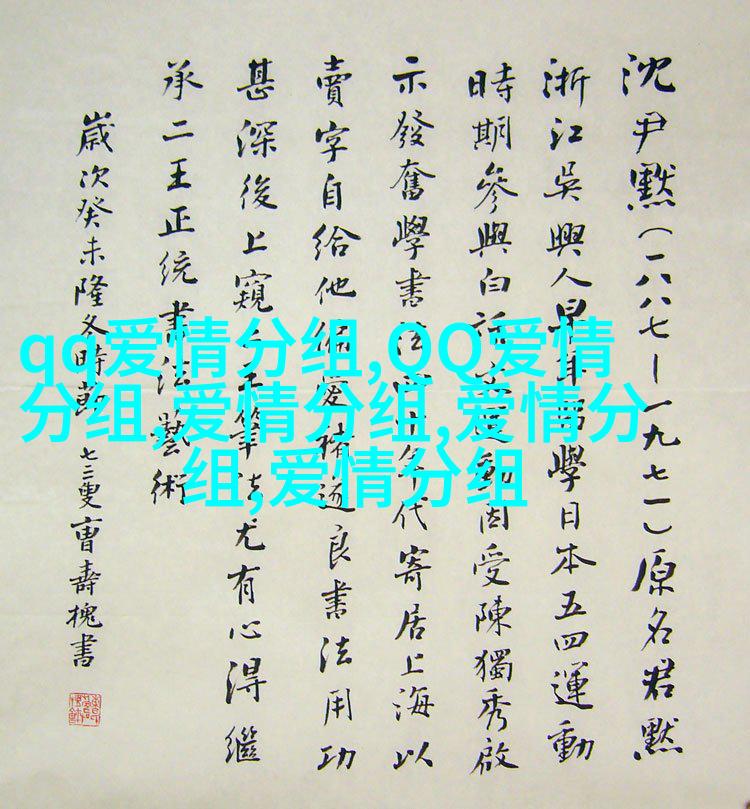 沈尹默（一八八七—一九七一）原名君默
浙江吳興人早年留學日本五四運動
時期參與白話文運動因受陳獨秀啟
示發奮學書法 年代寄居上海以
賣字自給他 褚遂良書法用功
甚深後上窺二王筆法尤有心得繼
承二王正统書法藝術
歲次癸未隆冬時節七三叟曹壽槐書
qq爱情分组,QQ爱情
分组,爱情分组,爱情分
组,爱情分组